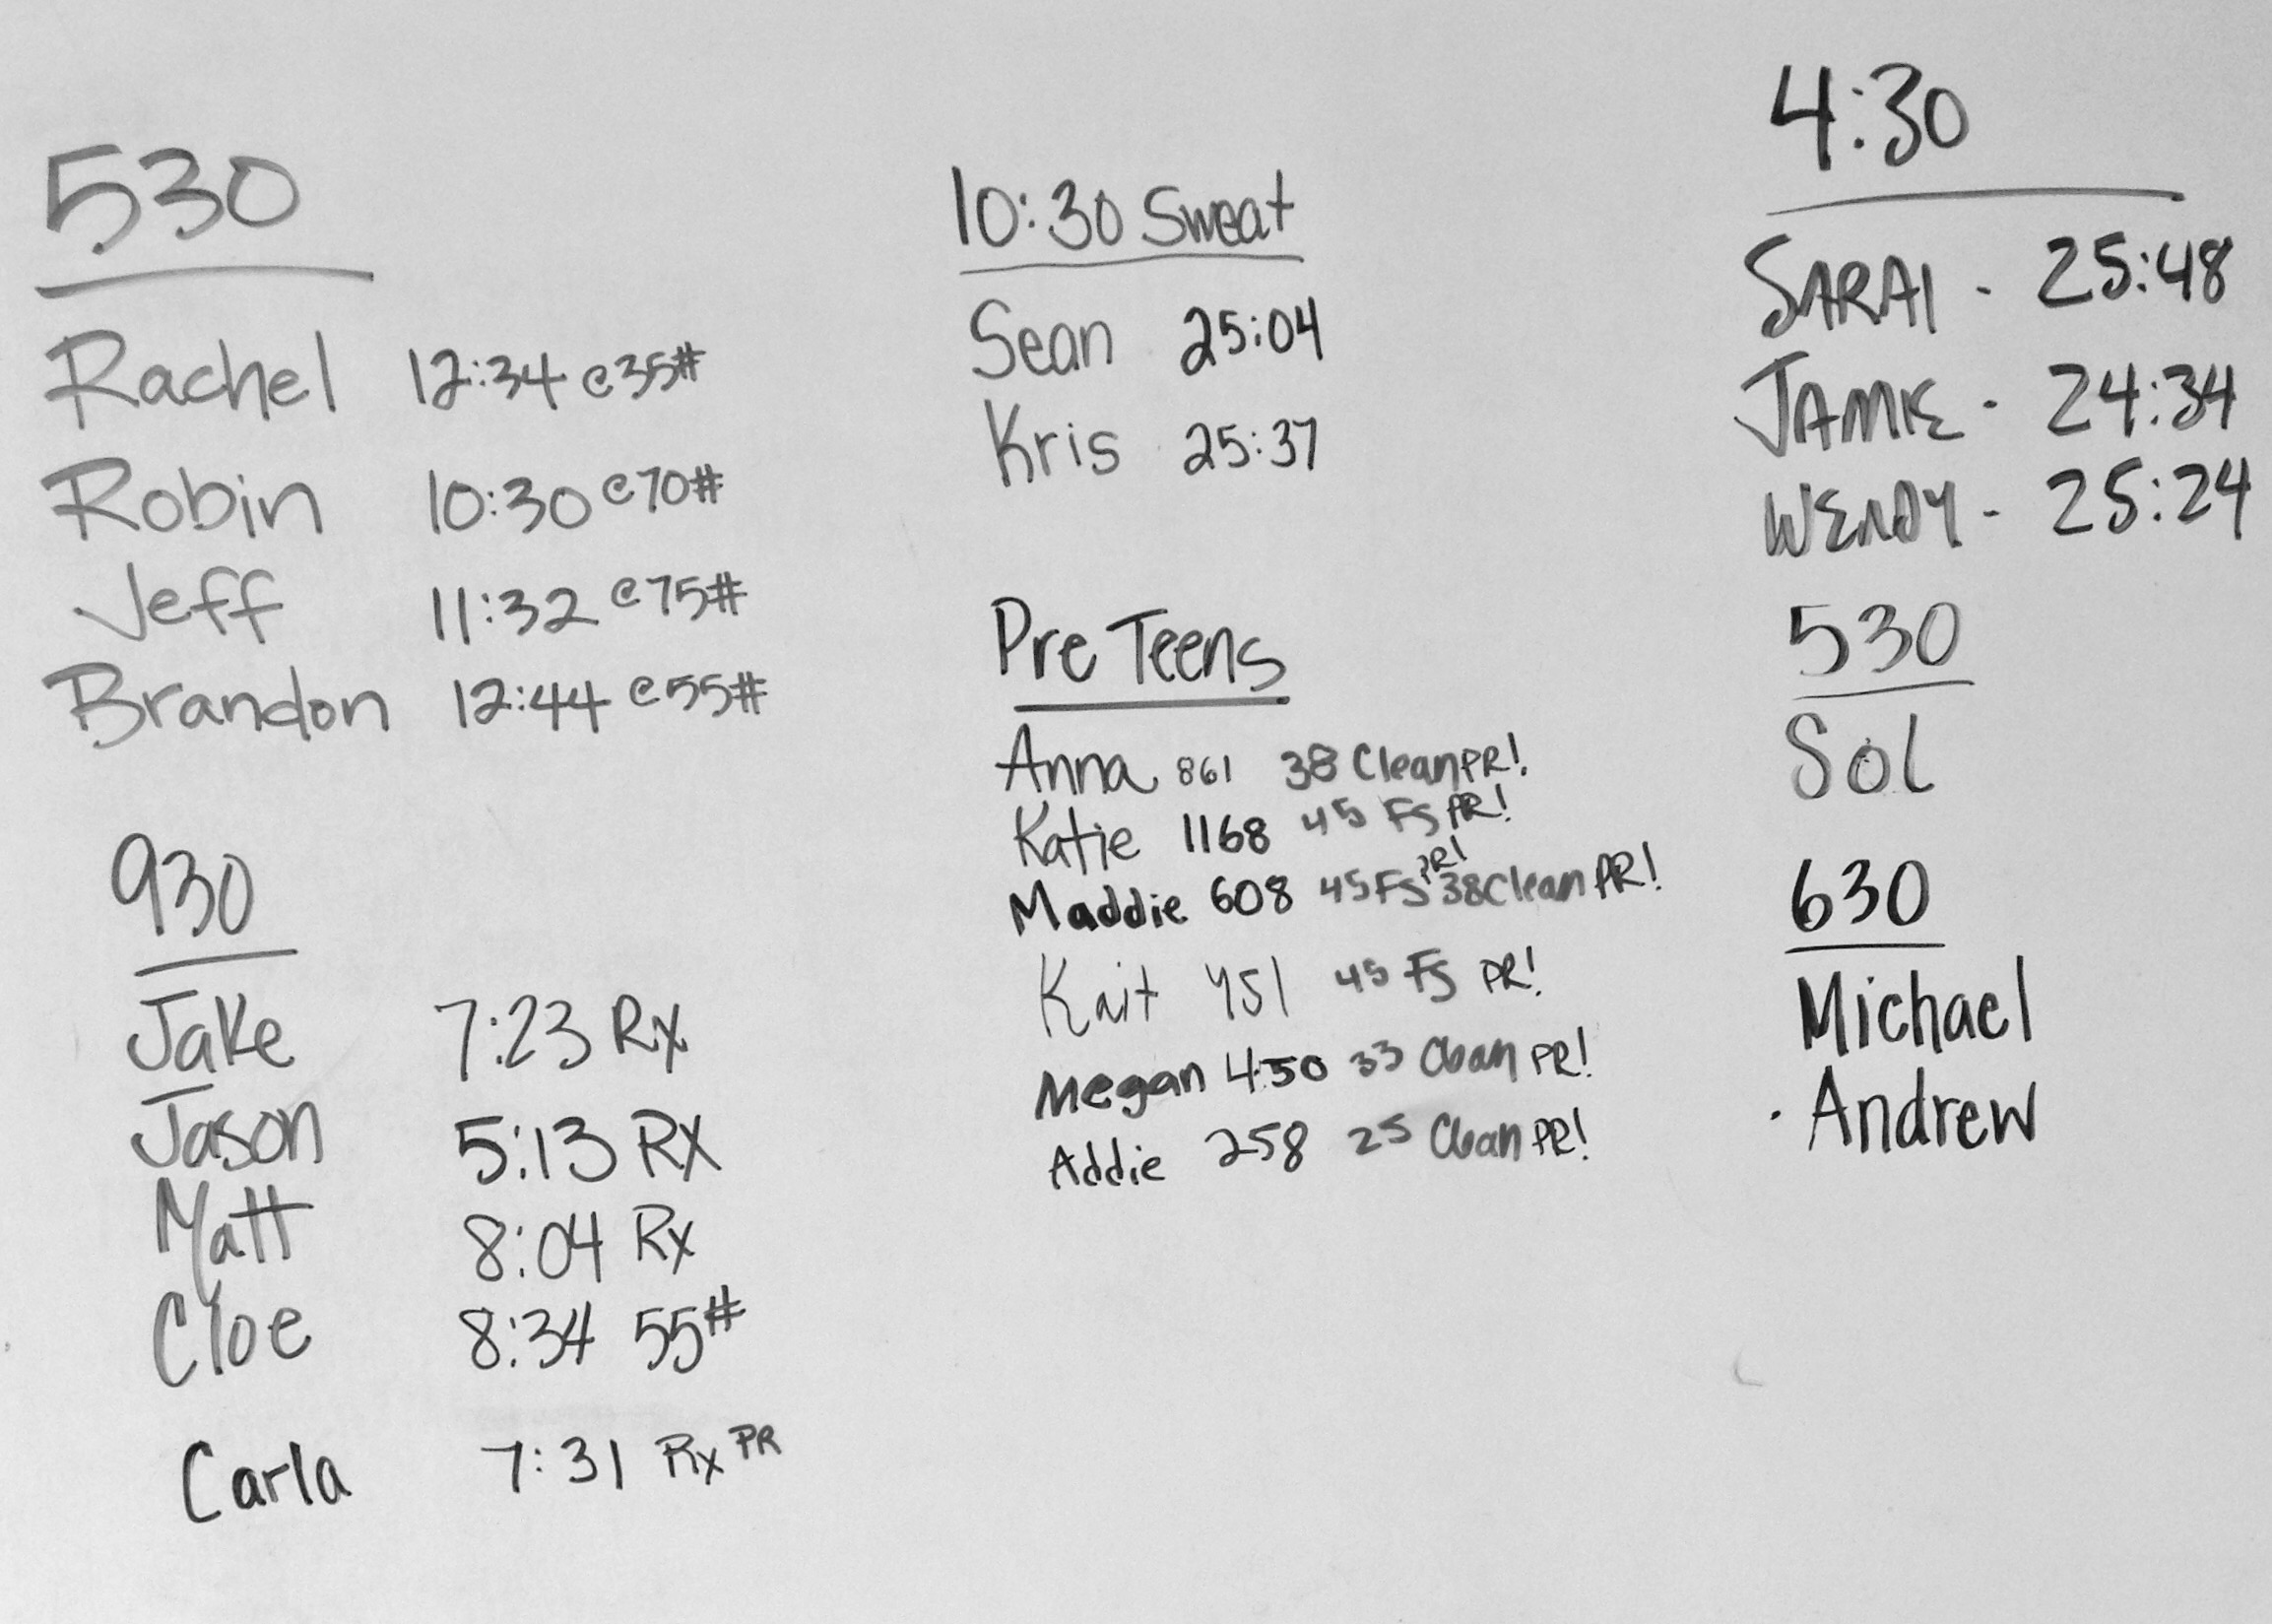 530
Rachel 12:34 @35#
Robin 10:30 @70#
Jeff 11:32 @75#
Brandon 12:44 @55#
930
Jake 7:23 Rx
Jason 5:13 RX
Matt 8:04 Rx
Cloe 8:34 55#
Carla 7:31 Rx PR
10:30 Sweat
Sean 25:04
Kris 25:37
Pre Teens
Anna 861 38 Clean PR!
Katie 1168 45 FS PR!
Maddie 608 45 FS PR! 38 Clean PR!
Kait 451 45 FS PR!
Megan 450 33 Clean PR!
Addie 258 25 Clean PR!
4:30
SARAI - 25:48
JAMIE - 24:34
WENDY - 25:24
530
Sol
630
Michael
Andrew